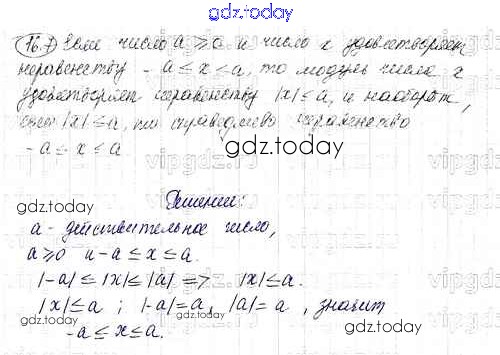 gdz.today
gdz.today
16.7) Если число a ⩾ 0 и число x удовлетворяет
неравенству - a ≤ x ≤ a, то модуль числа x
удовлетворяет неравенству |x| ≤ a, и наоборот,
если |x| ≤ a, то справедливо неравенство
- a ≤ x ≤ a
gdz.today
gdz.today
Решение:
a - действительное число,
a ⩾ 0 и -a ≤ x ≤ a.
|-a| ≤ |x| ≤ |a| => |x| ≤ a.
|x| ≤ a ; |-a| = a, |a| = a, значит
-a ≤ x ≤ a.
gdz.today
gdz.today